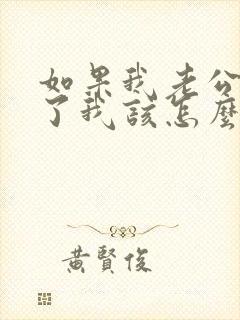 如果我老公
了我該怎麼
黃賢俊